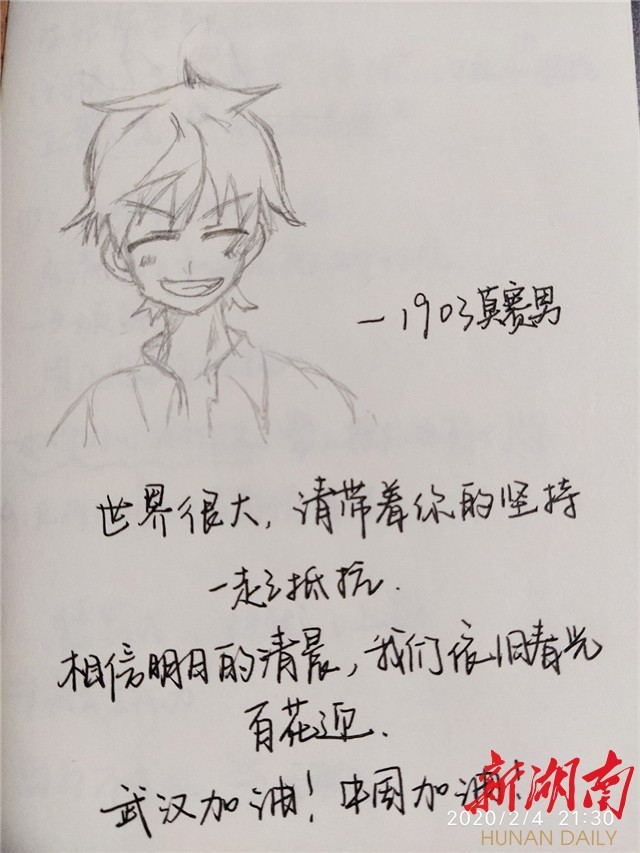 一1903莫赛男
世界很大，请带着你的坚持
一起抵抗.
相信明日的清晨，我们依旧春光
百花迎.
武汉加油！中国加油！
新湖南
2020/2/4 21:30
HUNAN DAILY